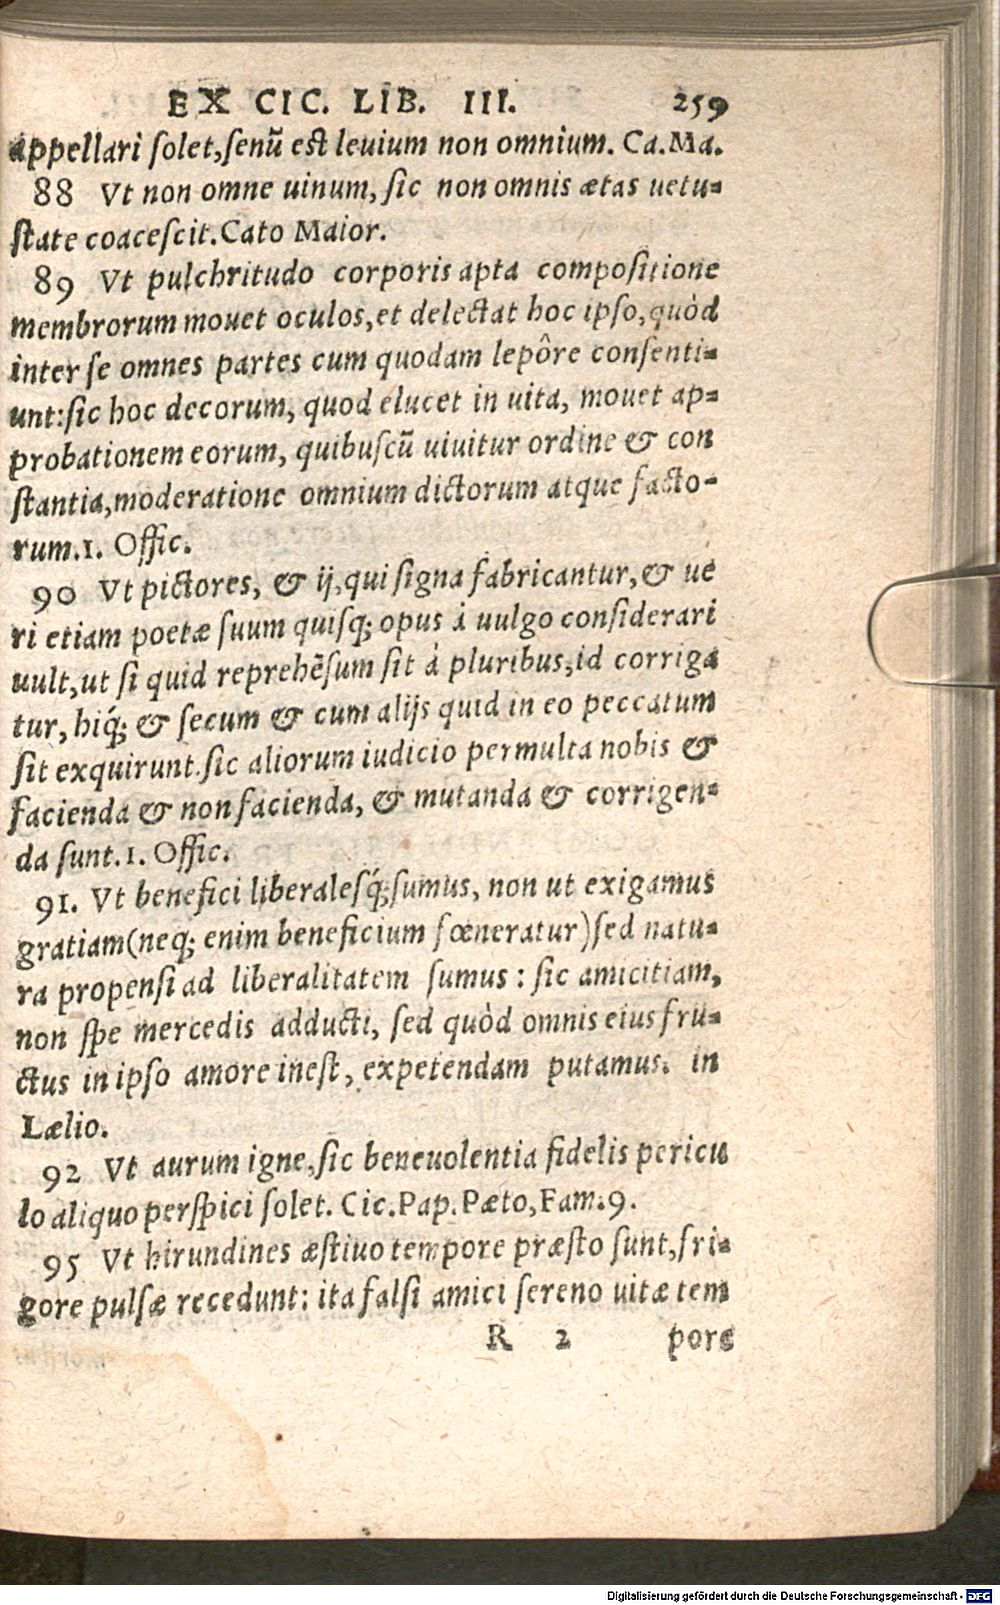 EX CIC. LIB. III. 259
appellari ſolet, ſenũ eſt leuium non omnium. Ca. Ma.
88 Vt non omne uinum, ſic non omnis ætas uetu-
ſtate coaceſcit. Cato Maior.
89 Vt pulchritudo corporis apta compoſitione
membrorum mouet oculos, et delectat hoc ipſo, quòd
inter ſe omnes partes cum quodam lepôre conſenti-
unt: ſic hoc decorum, quod elucet in uita, mouet ap-
probationem eorum, quibuſcũ uiuitur ordine & con
ſtantia, moderatione omnium dictorum atque facto-
rum. 1. Offic.
90 Vt pictores, & ij, qui ſigna fabricantur, & ue
ri etiam poetæ ſuum quiſq; opus à uulgo conſiderari
uult, ut ſi quid reprehẽſum ſit à pluribus, id corriga
tur, hiq́; & ſecum & cum alijs quid in eo peccatum
ſit exquirunt. ſic aliorum iudicio permulta nobis &
facienda & non facienda, & mutanda & corrigen-
da ſunt. 1. Offic.
91. Vt benefici liberaleſq́; ſumus, non ut exigamus
gratiam (neq; enim beneficium fœneratur) ſed natu-
ra propenſi ad liberalitatem ſumus: ſic amicitiam,
non ſpe mercedis adducti, ſed quòd omnis eius fru-
ctus in ipſo amore ineſt, expetendam putamus. in
Lælio.
92 Vt aurum igne, ſic beneuolentia fidelis pericu
lo aliquo perſpici ſolet. Cic. Pap. Pæto, Fam. 9.
95 Vt hirundines æſtiuo tempore præſto ſunt, fri-
gore pulſæ recedunt: ita falſi amici ſereno uitæ tem
R 2 pore
Digitalisierung gefördert durch die Deutsche Forschungsgemeinschaft - DFG